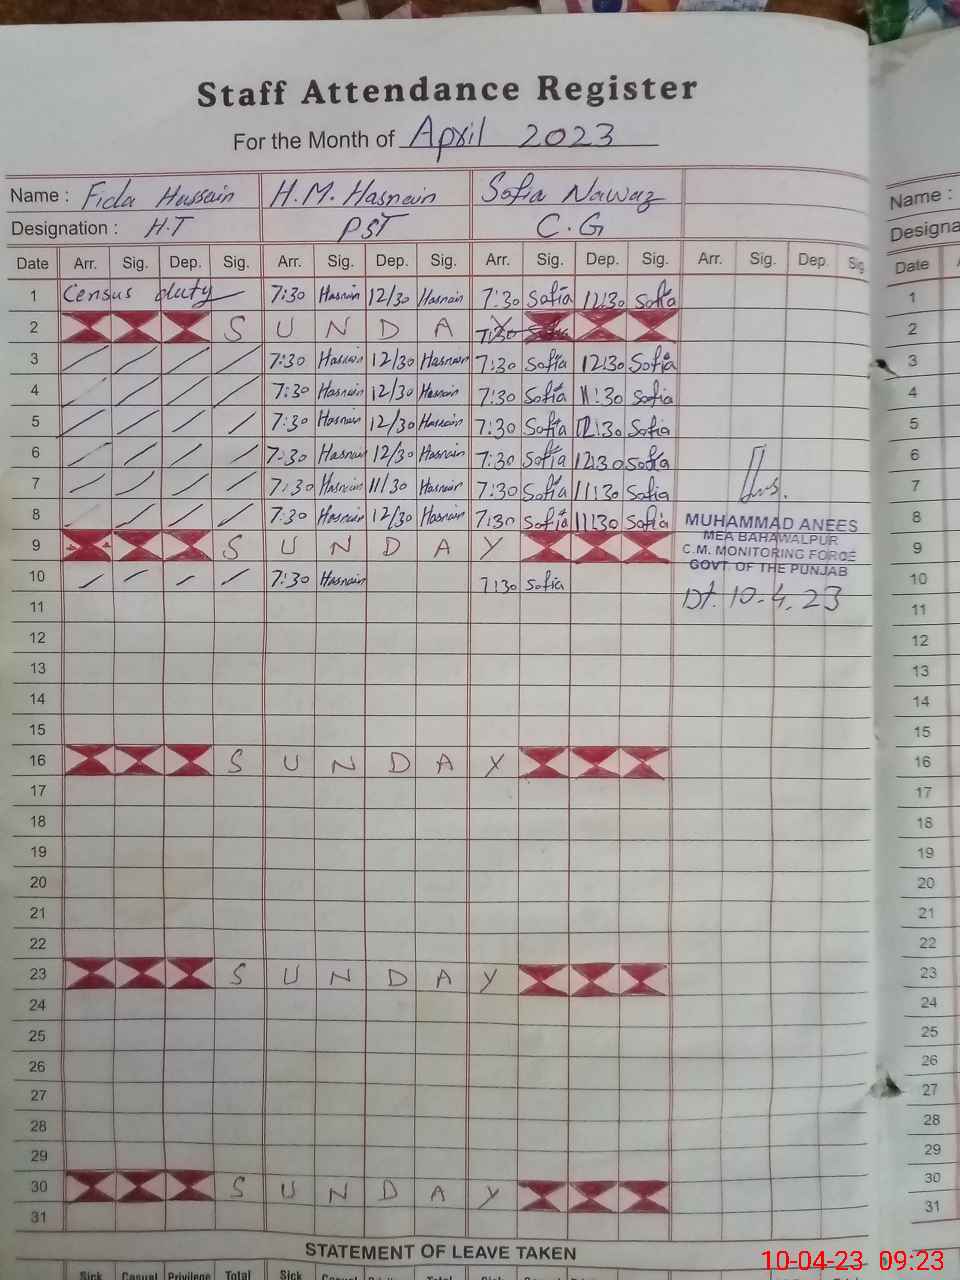 Staff Attendance Register
For the Month of April 2023
Name : Fida Hussain H.M. Hasnain Sofia Nawaz Name :
Designation : H.T PST C.G Designa
Date Arr. Sig. Dep. Sig. Arr. Sig. Dep. Sig. Arr. Sig. Dep. Sig. Arr. Sig. Dep. Sig Date
1 Census duty 7:30 Hasnain 12/30 Hasnain 7:30 Sofia 11:30 Sofia 1
2 S U N D A Y 7:30 Sofia 2
3 7:30 Hasnain 12/30 Hasnain 7:30 Sofia 12:30 Sofia 3
4 7:30 Hasnain 12/30 Hasnain 7:30 Sofia 11:30 Sofia 4
5 7:30 Hasnain 12/30 Hasnain 7:30 Sofia 12:30 Sofia 5
6 7:30 Hasnain 12/30 Hasnain 7:30 Sofia 12:30 Sofia 6
7 7:30 Hasnain 11/30 Hasnain 7:30 Sofia 11:30 Sofia 7
8 7:30 Hasnain 12/30 Hasnain 7:30 Sofia 11:30 Sofia MUHAMMAD ANEES 8
MEA BAHAWALPUR
9 S U N D A Y C.M. MONITORING FORCE 9
GOVT. OF THE PUNJAB
10 7:30 Hasnain 7:30 Sofia 10
11 Dt. 10-4.23 11
12 12
13 13
14 14
15 15
16 S U N D A Y 16
17 17
18 18
19 19
20 20
21 21
22 22
23 S U N D A Y 23
24 24
25 25
26 26
27 27
28 28
29 29
30 S U N D A Y 30
31 31
STATEMENT OF LEAVE TAKEN
10-04-23 09:23
Sick Casual Privilege Total Sick